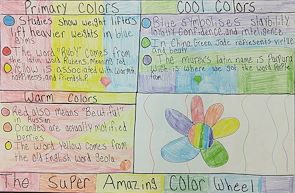 Primary Colors
Studies show weight lifters
lift heavier weights in blue
The word "Ruby" comes from
the latin word Rubens, meaning red
Yellow is associated with warmth,
happiness and friendship
Cool Colors
Blue symbolises stability
loyalty confidence and intelligence
In China Green Jade represents virtue
and beauty
The Murex's latin name is Purpura
which is where we got the word Purple
Warm Colors
Red also means "Beautiful"
in Russian
Oranges are actually modified
berries
The word Yellow comes from
the old English word Geolo
The Super Amazing Color Wheel